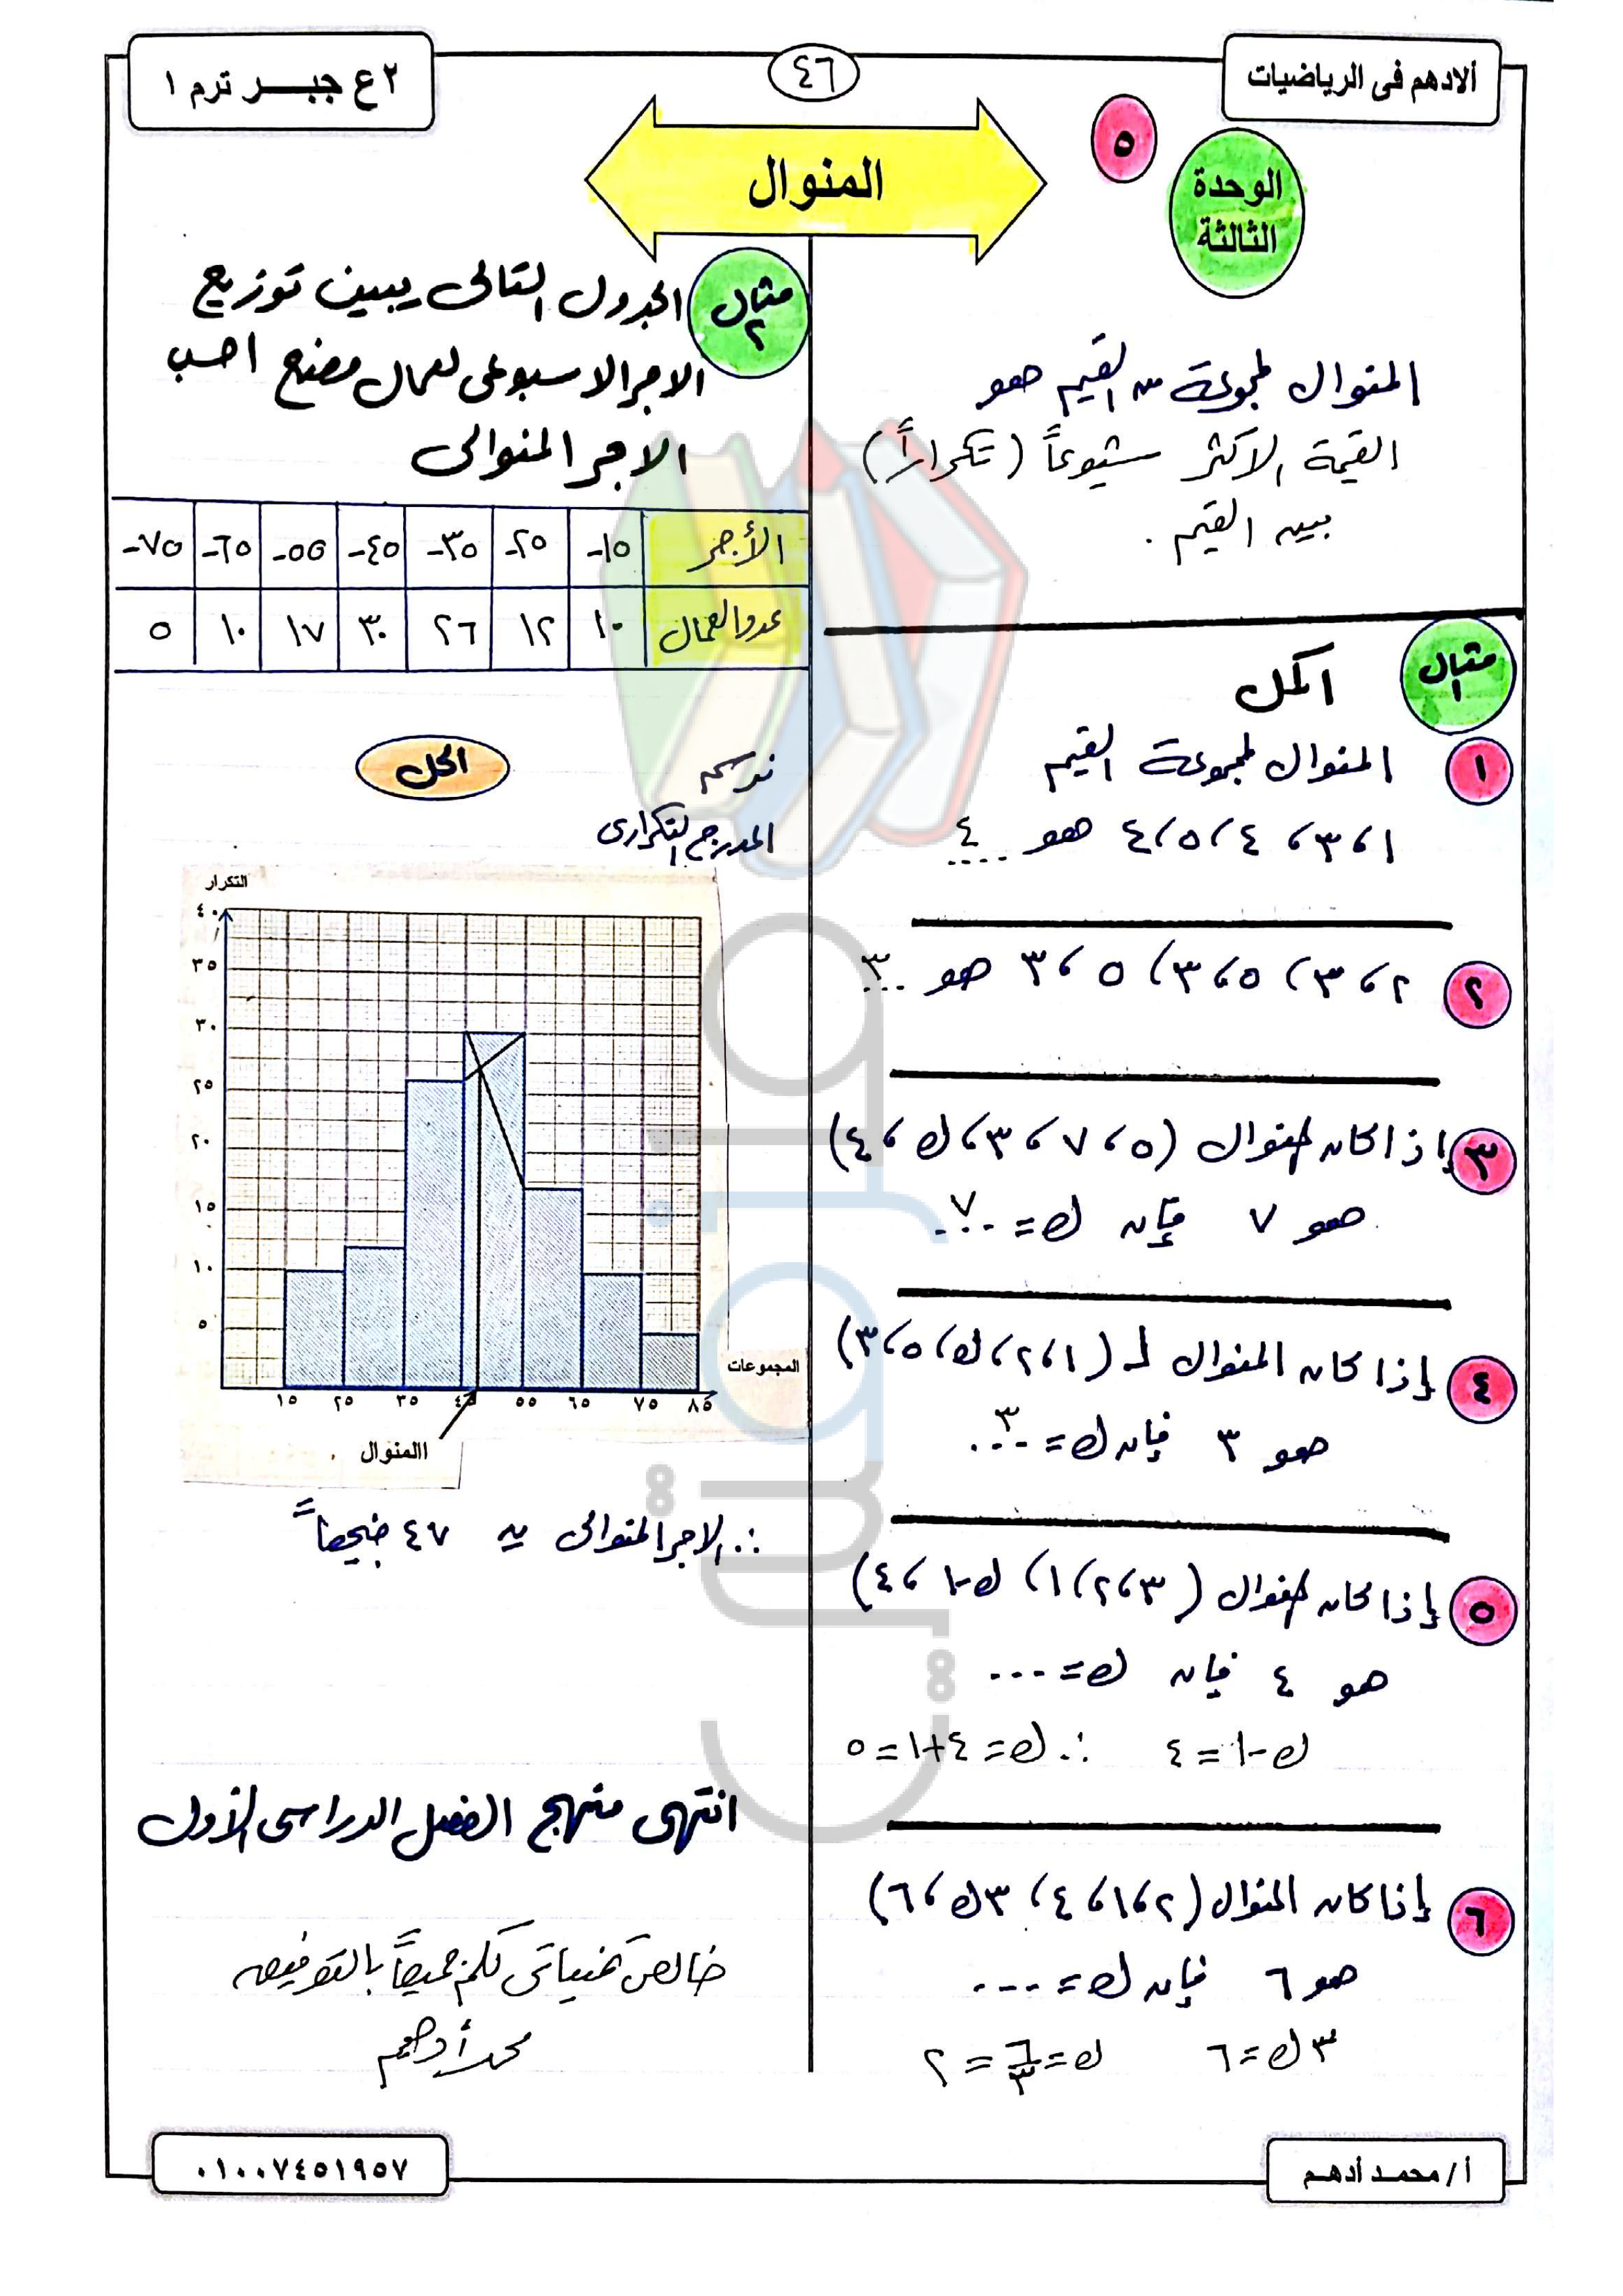 ألادهم فى الرياضيات
٤٦
٢ ع جبـــر ترم ١
٥
الوحدة
الثالثة
المنوال
المنوال لمجموعة من القيم هو
القيمة الأكثر شيوعاً (تكراراً)
بين القيم .
مثال
١
اكمل
١ المنوال لمجموعة القيم
١ ، ٣ ، ٤ ، ٥ ، ٤ هو ٤....
٢ ٢ ، ٣ ، ٥ ، ٣ ، ٥ ، ٣ هو ٣...
٣ إذا كان المنوال (٥ ، ٧ ، ٣ ، ك ، ٤)
هو ٧ فإن ك = ٧...
٤ إذا كان المنوال لـ (١ ، ٢ ، ك ، ٥ ، ٣)
هو ٣ فإن ك = ٣...
٥ إذا كان المنوال (٣ ، ٢ ، ١ ، ك-١ ، ٤)
هو ٤ فإن ك = ...
ك-١ = ٤ ∴ ك = ٤+١ = ٥
٦ إذا كان المنوال (٢ ، ١ ، ٤ ، ٣ك ، ٦)
هو ٦ فإن ك = ...
٣ك = ٦ ك = ٦/٣ = ٢
مثال
٢
الجدول التالى يبين توزيع
الاجر الاسبوعى لعمال مصنع احسب
الاجر المنوالى
الأجر ١٥- ٢٥- ٣٥- ٤٥- ٥٥- ٦٥- ٧٥-
عدد العمال ١٠ ١٢ ٢٦ ٣٠ ١٧ ١٠ ٥
الحل
نرسم
المدرج التكرارى
التكرار
٤٠
٣٥
٣٠
٢٥
٢٠
١٥
١٠
٥
المجموعات
١٥ ٢٥ ٣٥ ٤٥ ٥٥ ٦٥ ٧٥ ٨٥
االمنوال .
∴ الاجر المنوالى = ٤٧ جنيهاً
انتهى منهج الفصل الدراسى الأول
خالص تمنياتى لكم جميعاً بالتوفيق
محمد أدهم
أ / محمـد أدهـم
٠١٠٠٧٤٥١٩٥٧